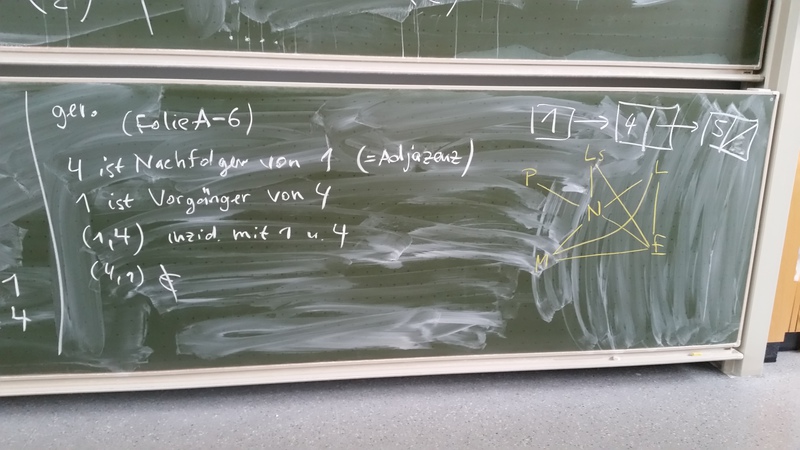 (2)
1
4
ger. (Folie A-6)
4 ist Nachfolger von 1 (=Adjazenz)
1 ist Vorgänger von 4
(1,4) inzid. mit 1 u. 4
(4,1)
1 → 4 → 5
P LS L
N
M E